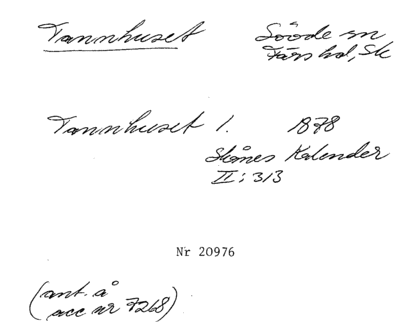 Tannhuset Sööde sn
Färs hd, Sk
Tannhuset 1. 1878
Skånes Kalender
II: 313
Nr 20976
(ant. å
acc nr 7268)